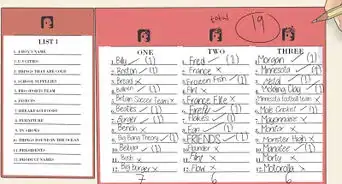 total 19
LIST 1
ONE
TWO
THREE
1. BOY'S NAME
2. U.S. CITIES
3. THINGS THAT ARE COLD
4. SCHOOL SUPPLIES
5. PRO SPORTS TEAM
6. INSECTS
7. BREAKFAST FOODS
8. FURNITURE
9. TV SHOWS
10. THINGS FOUND IN THE OCEAN
11. PRESIDENTS
12. PRODUCT NAMES
1. Billy ✓ (1)
2. Boston ✓ (1)
3. Bread x
Britain Soccer Team x
Beatles ✓ (1)
Bench x
9. Big Bang Theory ✓ (1)
Bush x
12. Big burger x
7
1. Fred ✓ (1)
2. France x
3. Frozen Fish ✓ (1)
4. Flint x
France Elite x
Firefly ✓ (1)
7. Flakes ✓ (1)
8. Fan ✓ (1)
9. FRIENDS ✓ (1)
Flounder x
12. Flow x
6
1. Morgan ✓ (1)
2. Minnesota ✓ (1)
3. Metal ✓ (1)
4. Molding Clay ✓ (1)
Minnesota football team x
6. Mole Cricket ✓ (1)
7. Mayonnaise x
8. Monitor x
9. Monster High x
10. Manatee ✓ (1)
11. Monty x
12. Motorolla x
6